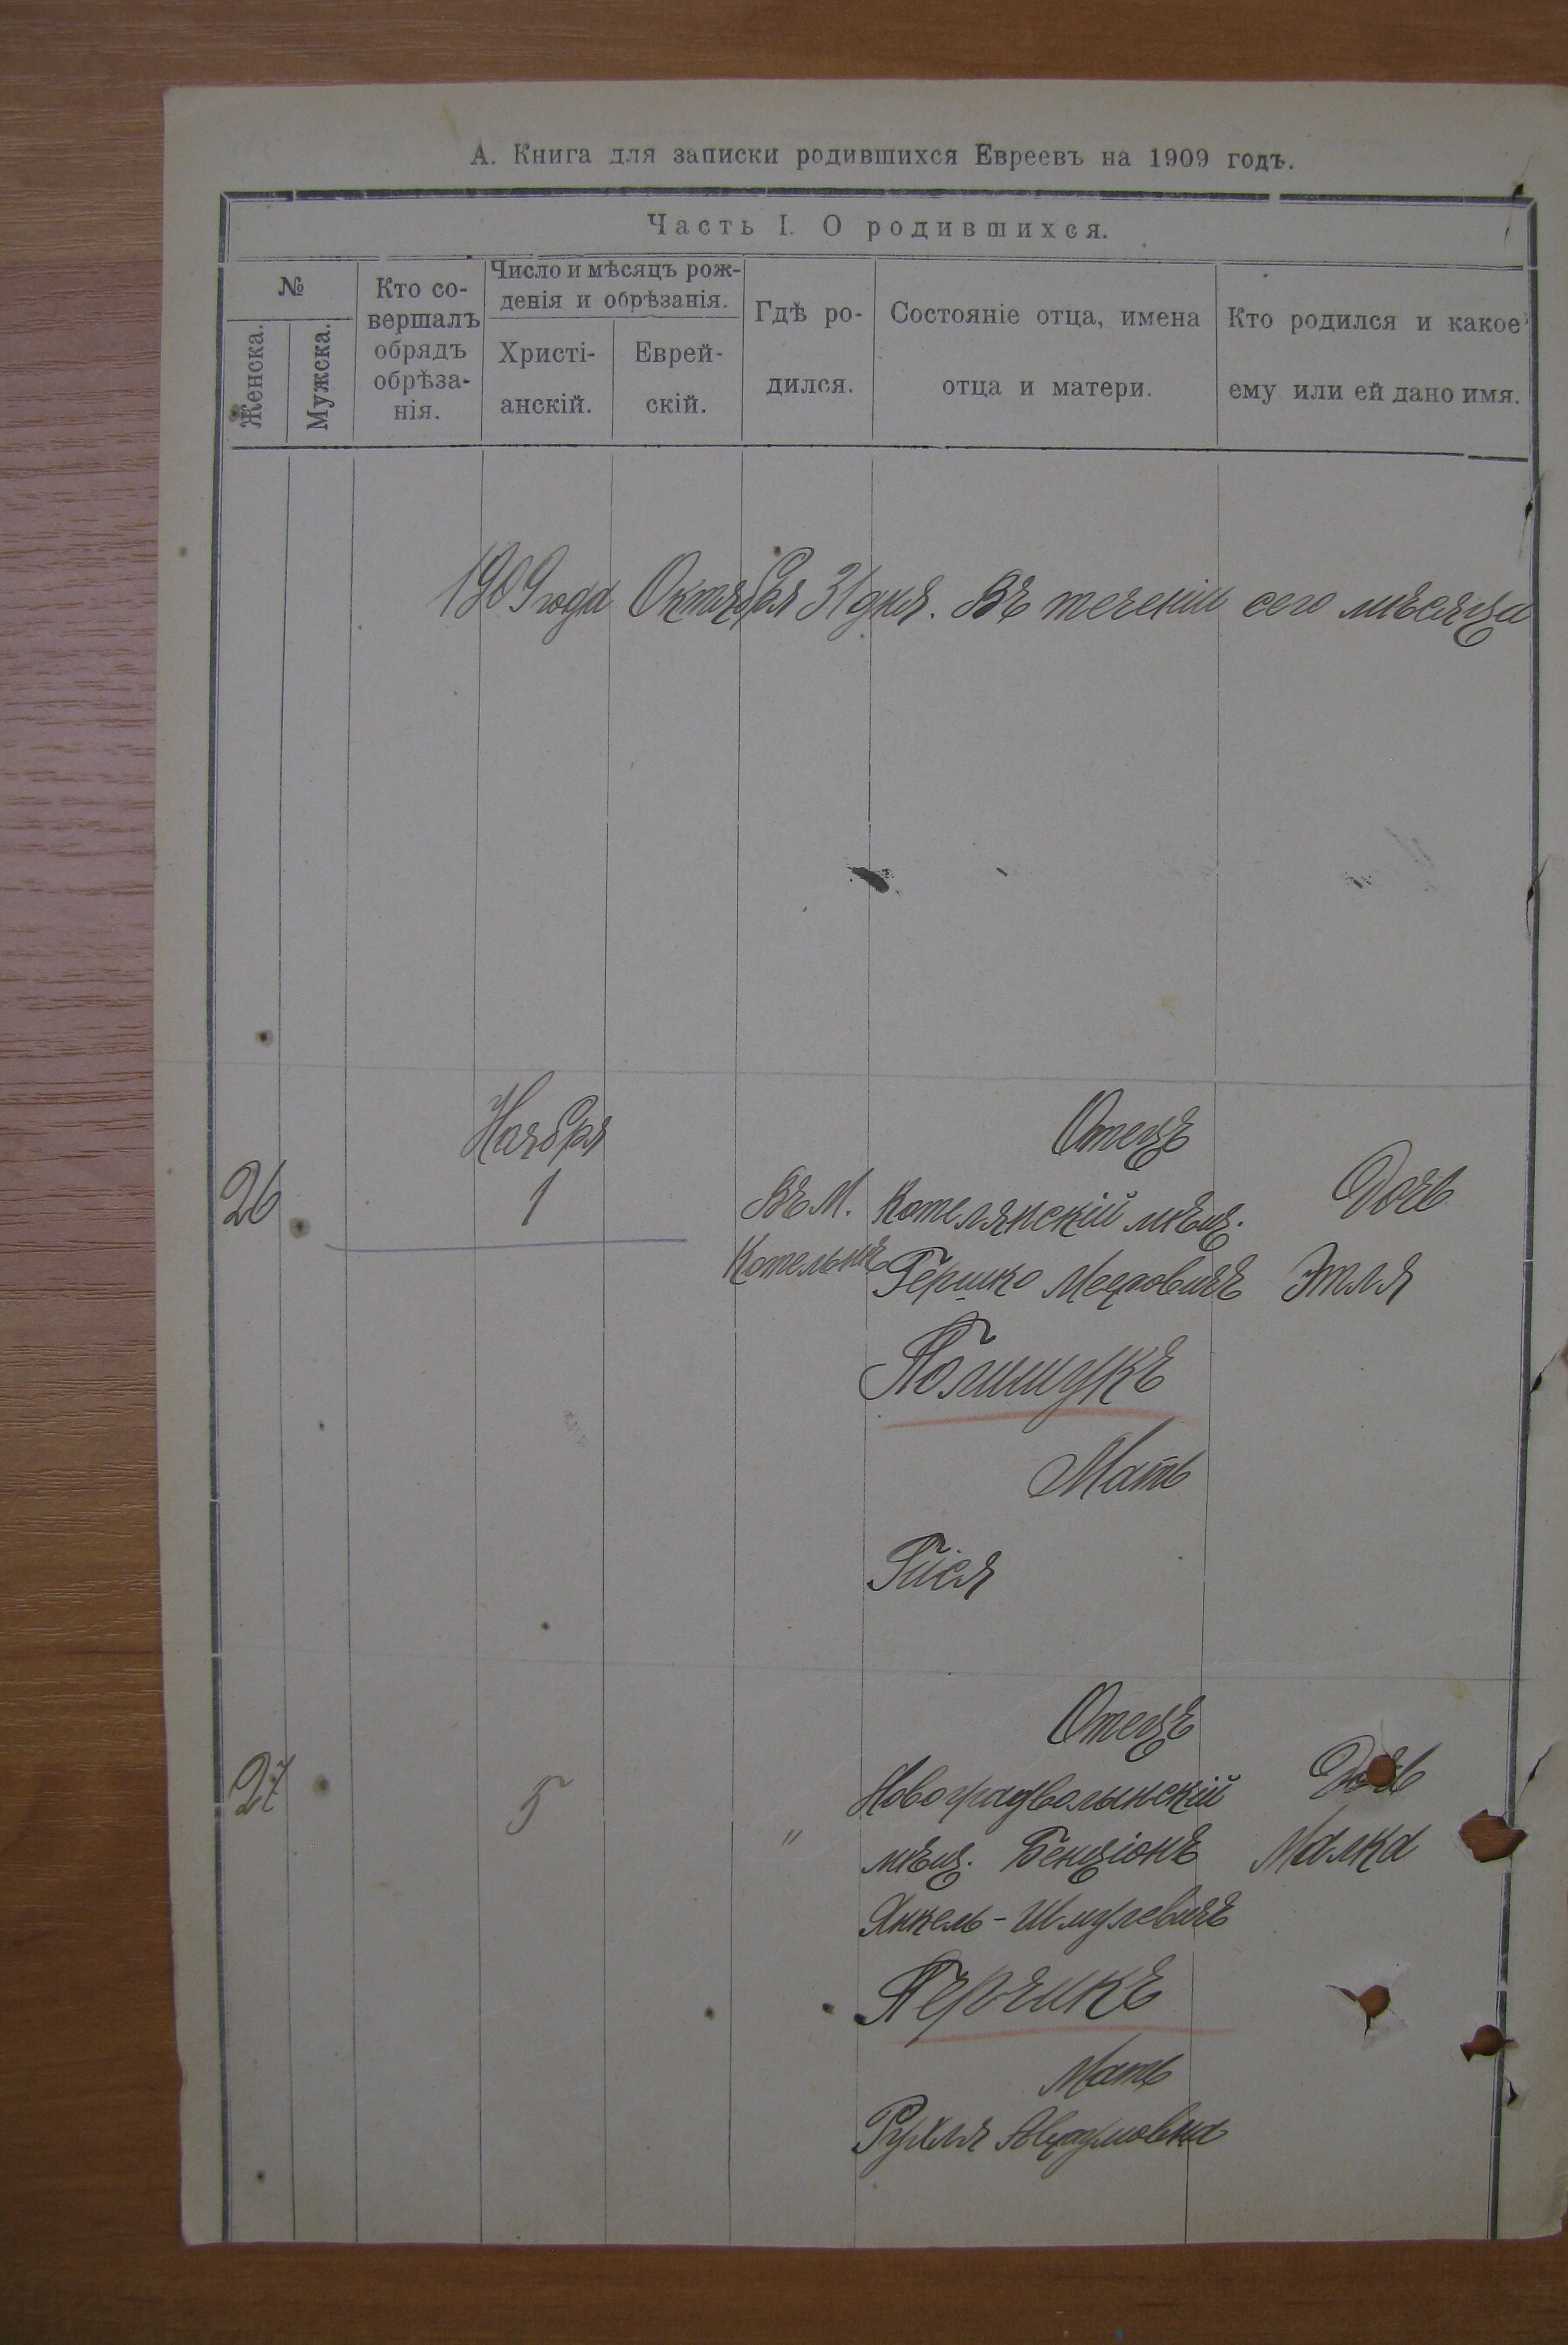 А. Книга для записки родившихся Евреевъ на 1909 годъ.
Часть I. О родившихся.
№
Женска.
Мужска.
Кто со-
вершалъ
обрядъ
обрѣза-
нія.
Число и мѣсяцъ рож-
денія и обрѣзанія.
Христі-
анскій.
Еврей-
скій.
Гдѣ ро-
дился.
Состояніе отца, имена
отца и матери.
Кто родился и какое
ему или ей дано имя.
1909 года Октября 31 дня. Въ теченіи сего мѣсяца
Ноября
26
1
Въ М.
Котельнѣ
Отецъ
Котелянскій мѣщ.
Гершко
Полищукъ
Мать
Гися
Дочь
Этля
27
5
"
Отецъ
Новоградволынскій
мѣщ. Бенціонъ
Янкель-Шмулевичъ
Перчикъ
Мать
Рухля
Дочь
Малка